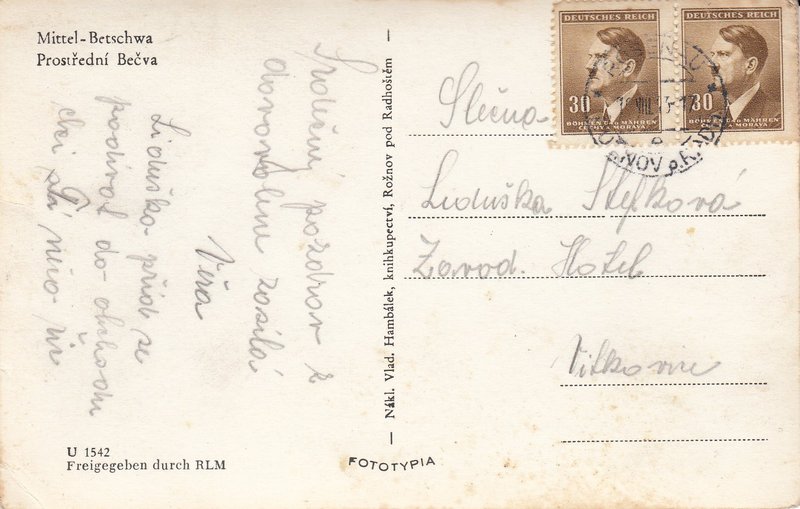 Mittel-Betschwa
Prostřední Bečva
Srdečný pozdrav z
dovolené zasílá
Věra
Liduško přijď se
podívat do obchodu
U 1542
Freigegeben durch RLM
— Nákl. Vlad. Hambálek, knihkupectví, Rožnov pod Radhoštěm —
FOTOTYPIA
DEUTSCHES REICH
30
BÖHMEN u. MÄHREN
ČECHY a MORAVA
DEUTSCHES REICH
30
BÖHMEN u. MÄHREN
ČECHY a MORAVA
Slečna
Liduška Stefková
Zavod. Hotel
Vitkovice